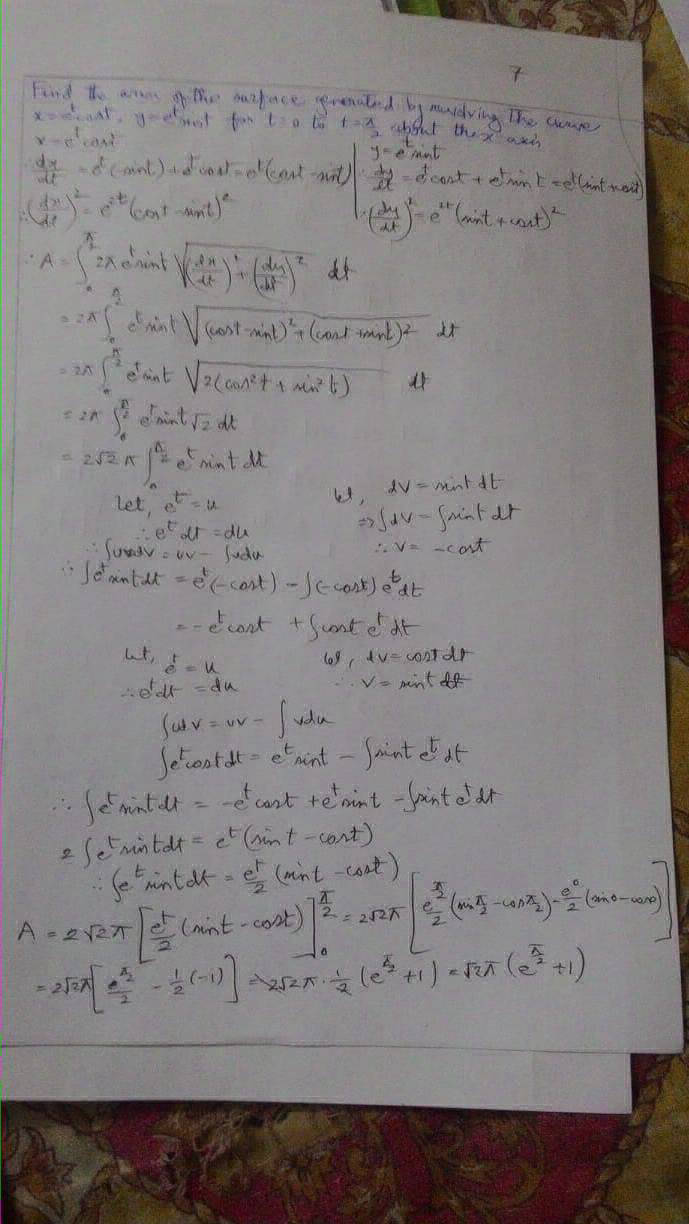 7
Find the area of the surface generated by revolving the curve
x = e^t cost, y = e^t sint for t = 0 to t = π/2 about the x axis
x = e^t cost
y = e^t sint
∴ dx/dt = e^t(-sint) + e^t cost = e^t(cost - sint)
∴ dy/dt = e^t cost + e^t sint = e^t(sint + cost)
∴ (dx/dt)^2 = e^2t (cost - sint)^2
∴ (dy/dt)^2 = e^2t (sint + cost)^2
∴ A = ∫_0^{π/2} 2π e^t sint √((dx/dt)^2 + (dy/dt)^2) dt
= 2π ∫_0^{π/2} e^t sint √((cost - sint)^2 + (cost + sint)^2) dt
= 2π ∫_0^{π/2} e^t sint √(2(cos^2 t + sin^2 t)) dt
= 2π ∫_0^{π/2} e^t sint √2 dt
= 2√2 π ∫_0^{π/2} e^t sint dt
Let, e^t = u let, dv = sint dt
∴ e^t dt = du ⇒ ∫dv = ∫sint dt
∴ ∫udv = uv - ∫vdu ∴ v = -cost
∴ ∫e^t sint dt = e^t(-cost) - ∫(-cost) e^t dt
= -e^t cost + ∫cost e^t dt
let, e^t = u let, dv = cost dt
∴ e^t dt = du ∴ v = sint
∫udv = uv - ∫vdu
∫e^t cost dt = e^t sint - ∫sint e^t dt
∴ ∫e^t sint dt = -e^t cost + e^t sint - ∫sint e^t dt
2 ∫e^t sint dt = e^t (sint - cost)
∴ ∫e^t sint dt = e^t/2 (sint - cost)
A = 2√2π [e^t/2 (sint - cost)]_0^{π/2} = 2√2π [e^{π/2}/2 (sin π/2 - cos π/2) - e^0/2 (sin0 - cos0)]
= 2√2π [e^{π/2}/2 - 1/2 (-1)] = 2√2π · 1/2 (e^{π/2} + 1) = √2π (e^{π/2} + 1)